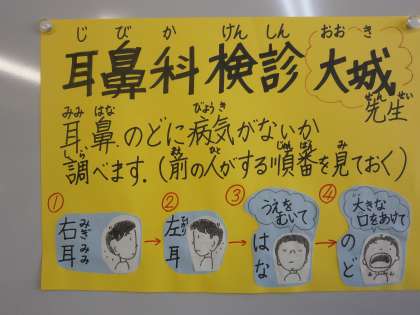 じびかけんしん おおき
耳鼻科検診 大城
せんせい
先生
みみ はな びょうき
耳、鼻、のどに病気がないか
しら まえ ひと じゅんばん み
調べます。(前の人がする順番を見ておく)
① ② ③ ④
右耳
みぎみみ
左耳
うえを
むいて
はな
大きな
口をあけて
のど